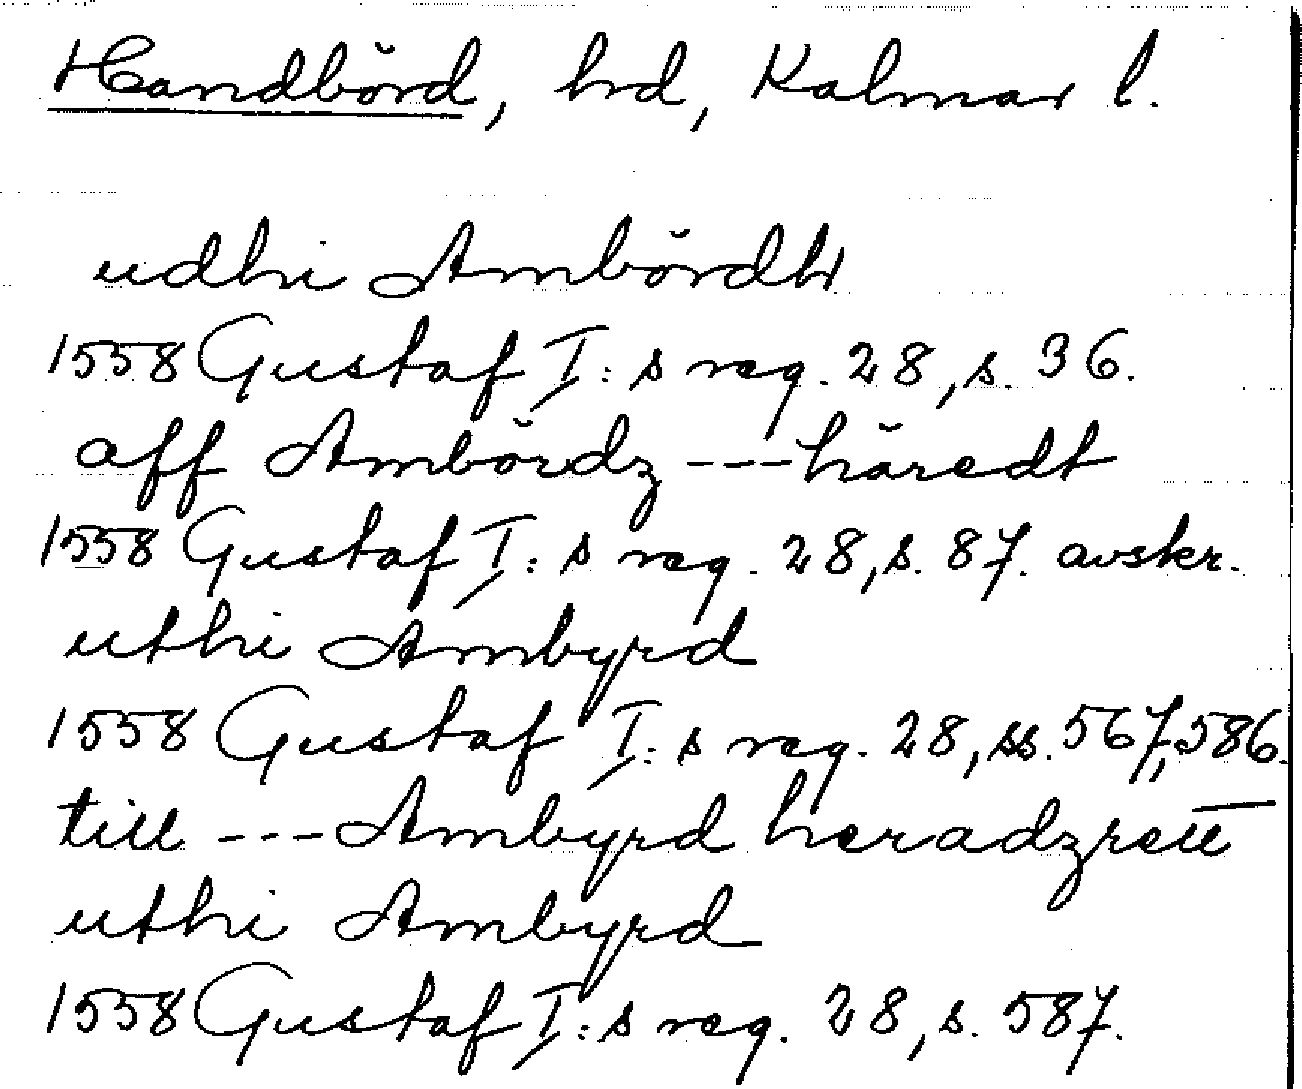 Handbörd, hd, Kalmar l.
udhi Ambördh
1558 Gustaf I:s reg. 28, s. 36.
aff Ambördz ---häredt
1558 Gustaf I:s reg. 28, s. 87. avskr.
uthi Ambyrd
1558 Gustaf I:s reg. 28, ss. 567, 586.
till ---Ambyrd heradzrett
uthi Ambyrd
1558 Gustaf I:s reg. 28, s. 587.